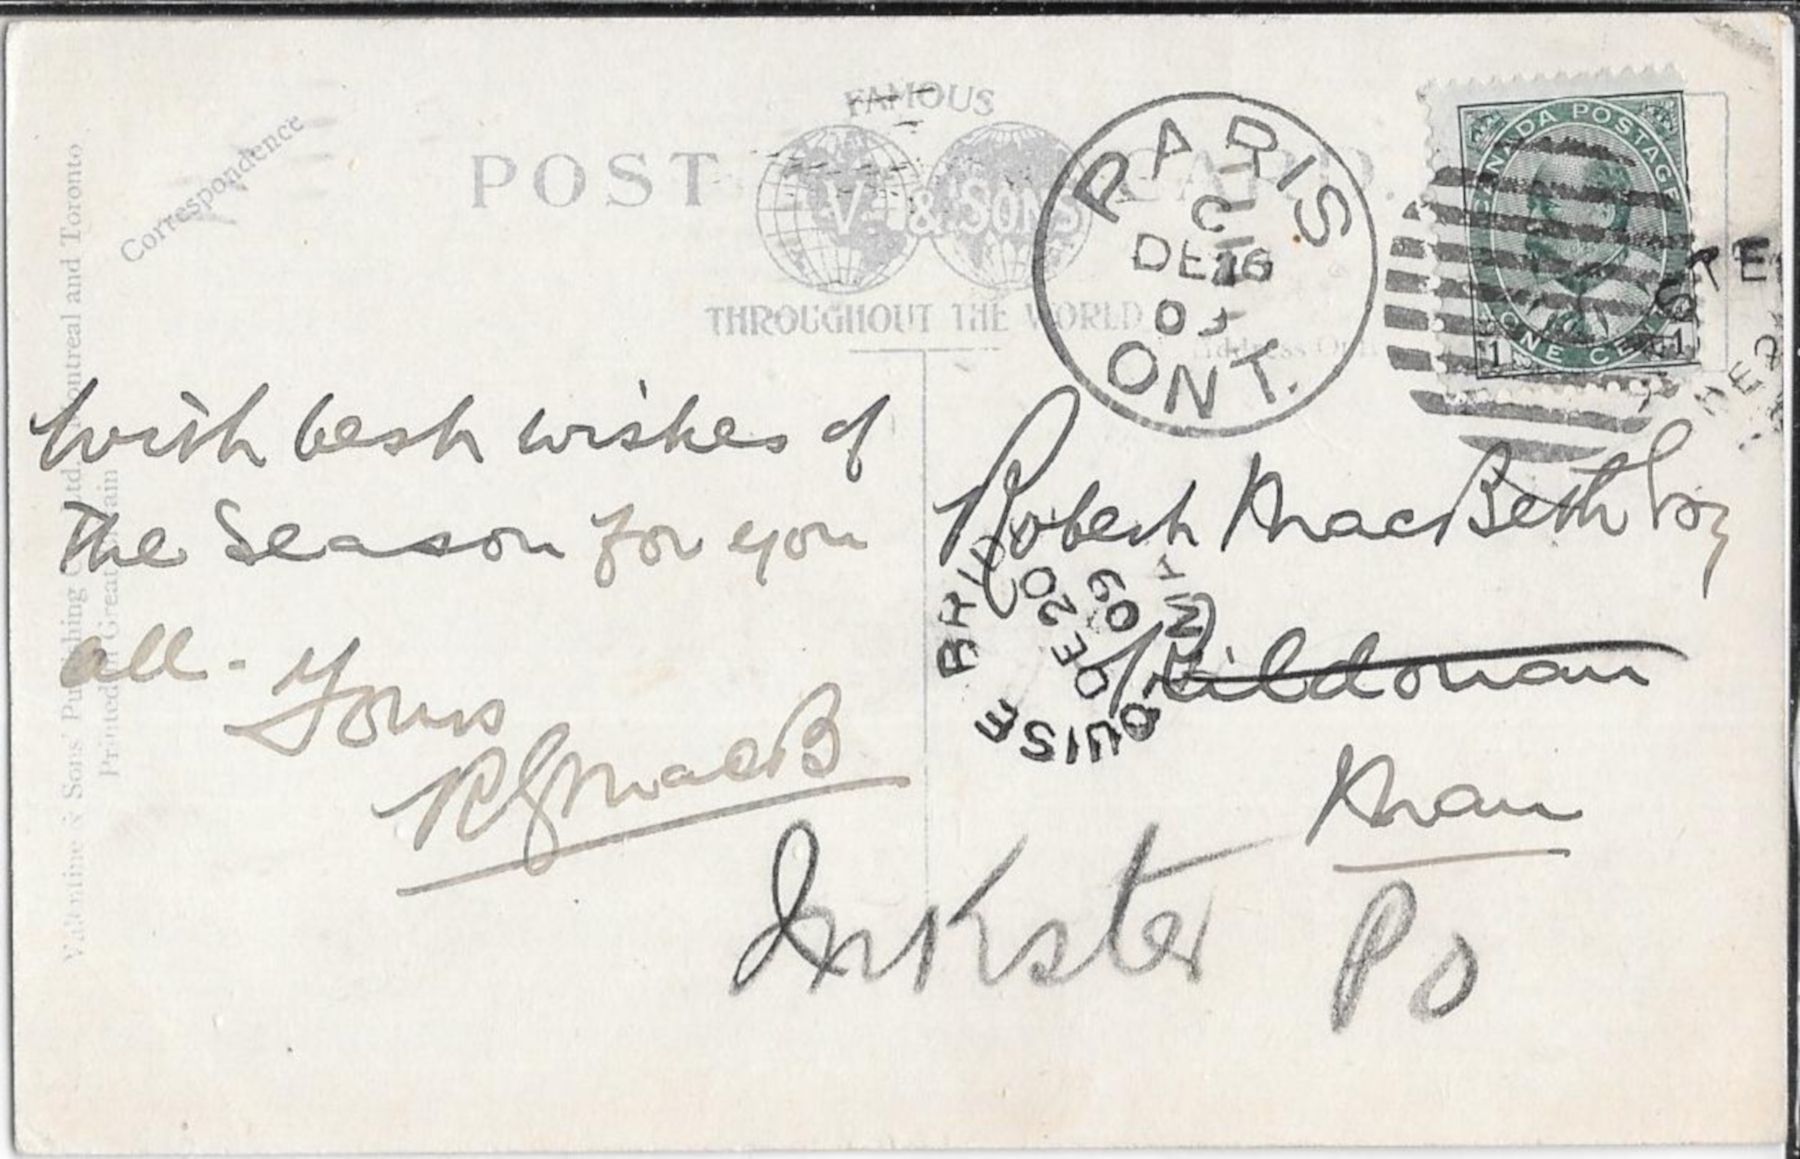 Correspondence
FAMOUS
POST CARD.
V. & SONS
THROUGHOUT THE WORLD
Address Only
Valentine & Sons' Publishing Co. Ltd. Montreal and Toronto
Printed in Great Britain
PARIS
DE 16
09
ONT.
CANADA POSTAGE
ONE CENT
1 1
With best wishes of
The Season for you
all - Yours
RGMacB
Robert MacBeth Esq
Kildonan
Man
Inkster PO
LOUISE BRIDGE
DE 20
09